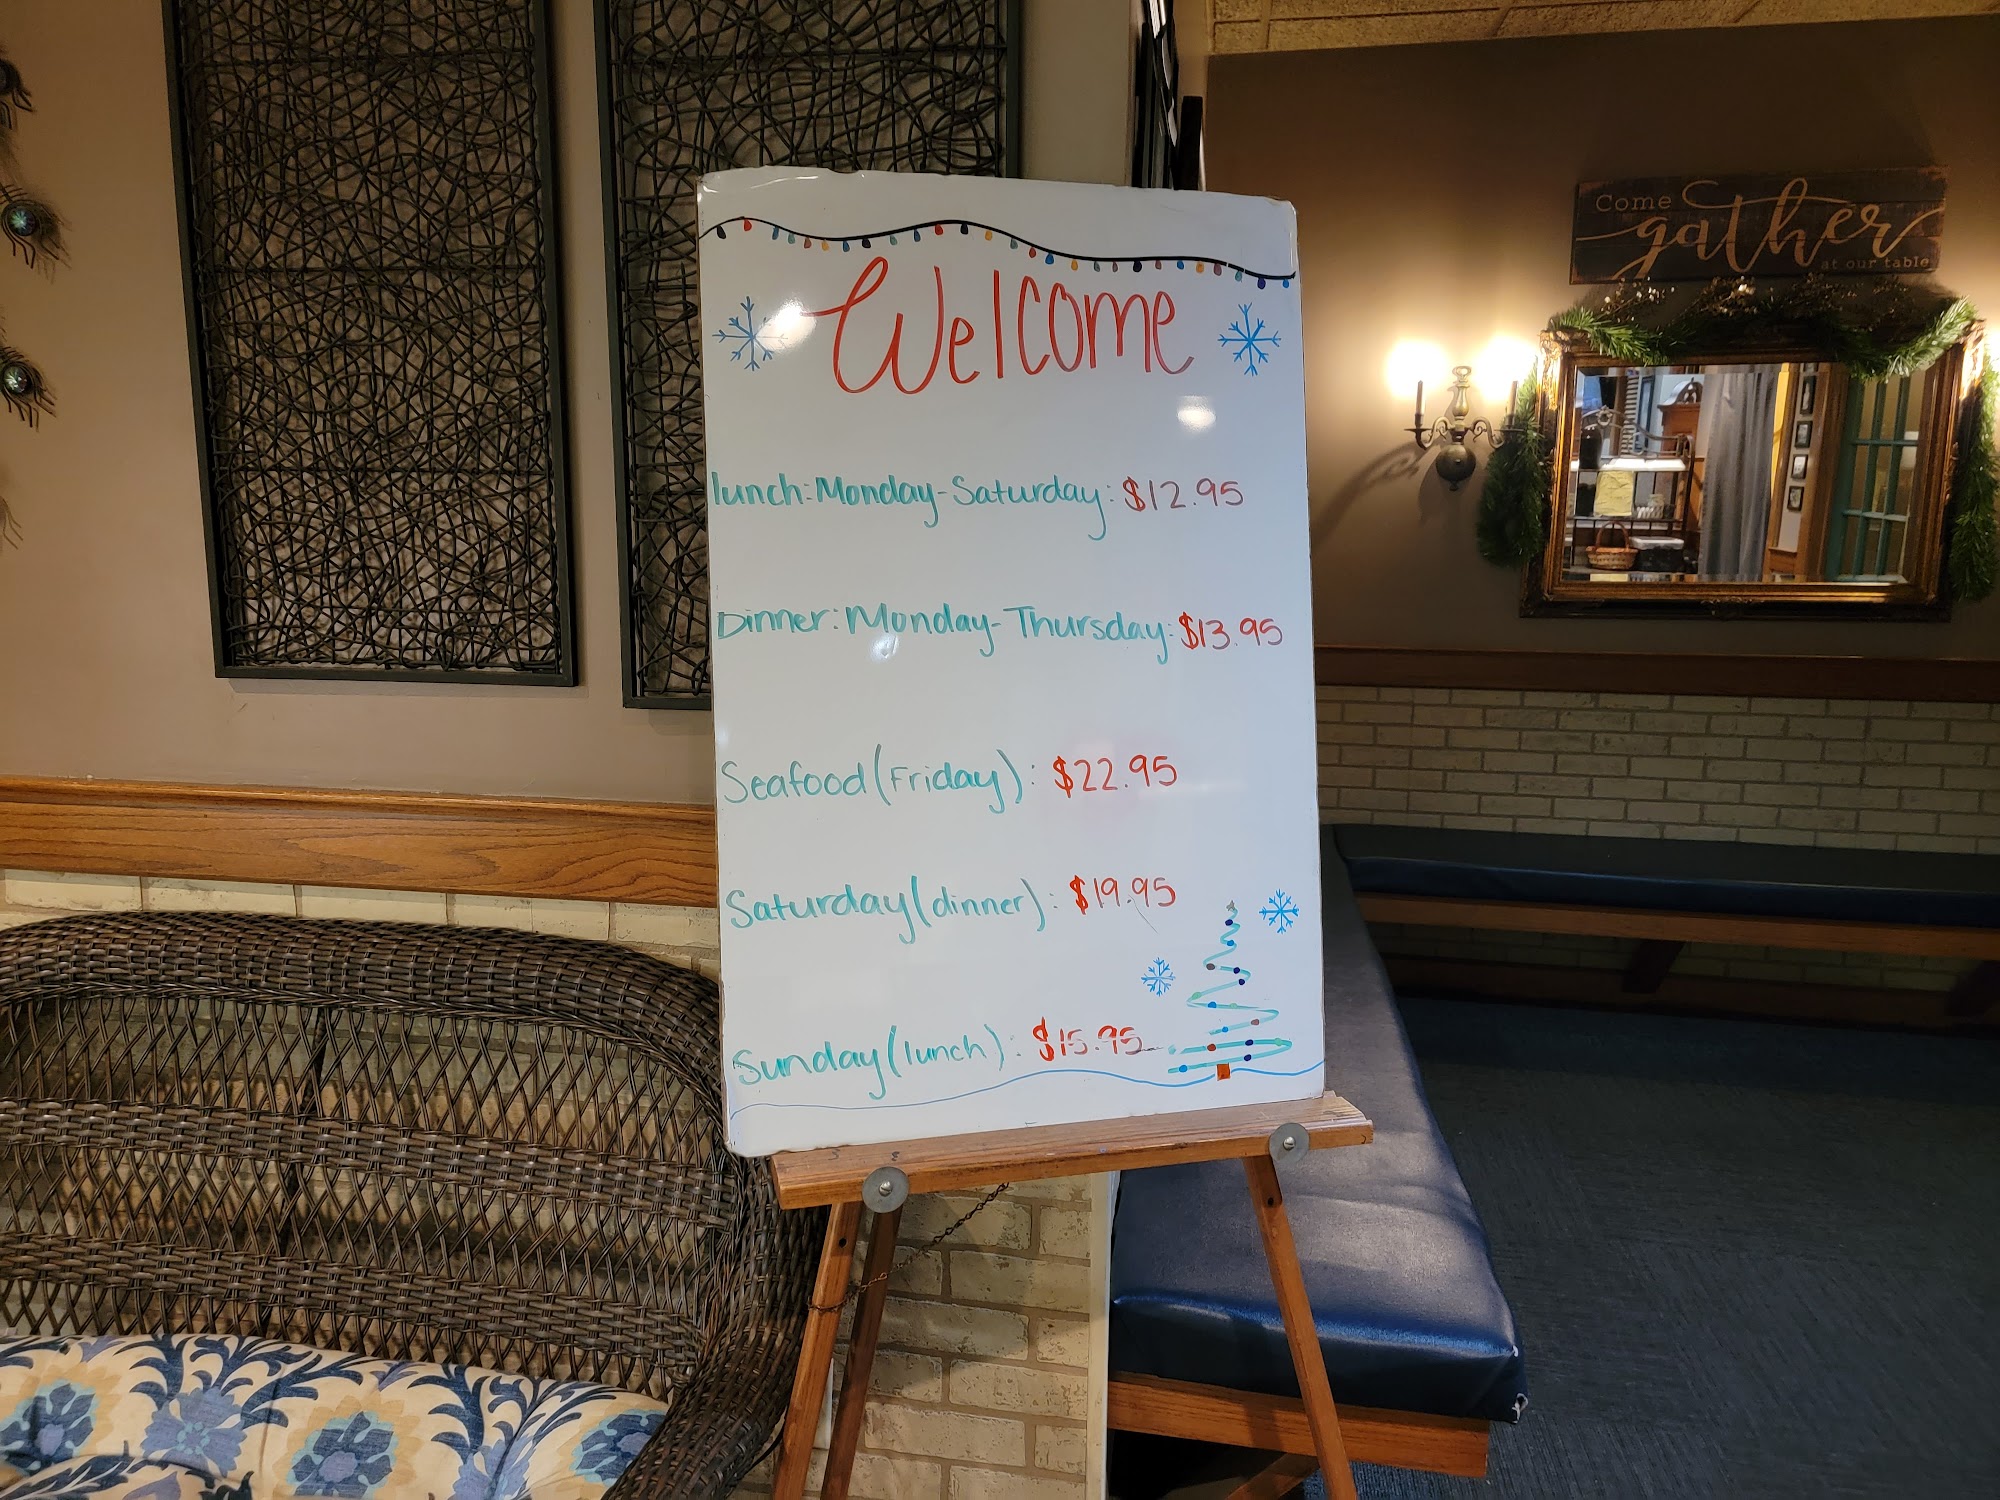 Welcome
lunch: Monday-Saturday: $12.95
Dinner: Monday-Thursday: $13.95
Seafood (Friday): $22.95
Saturday (dinner): $19.95
Sunday (lunch): $15.95
Come
gather
at our table